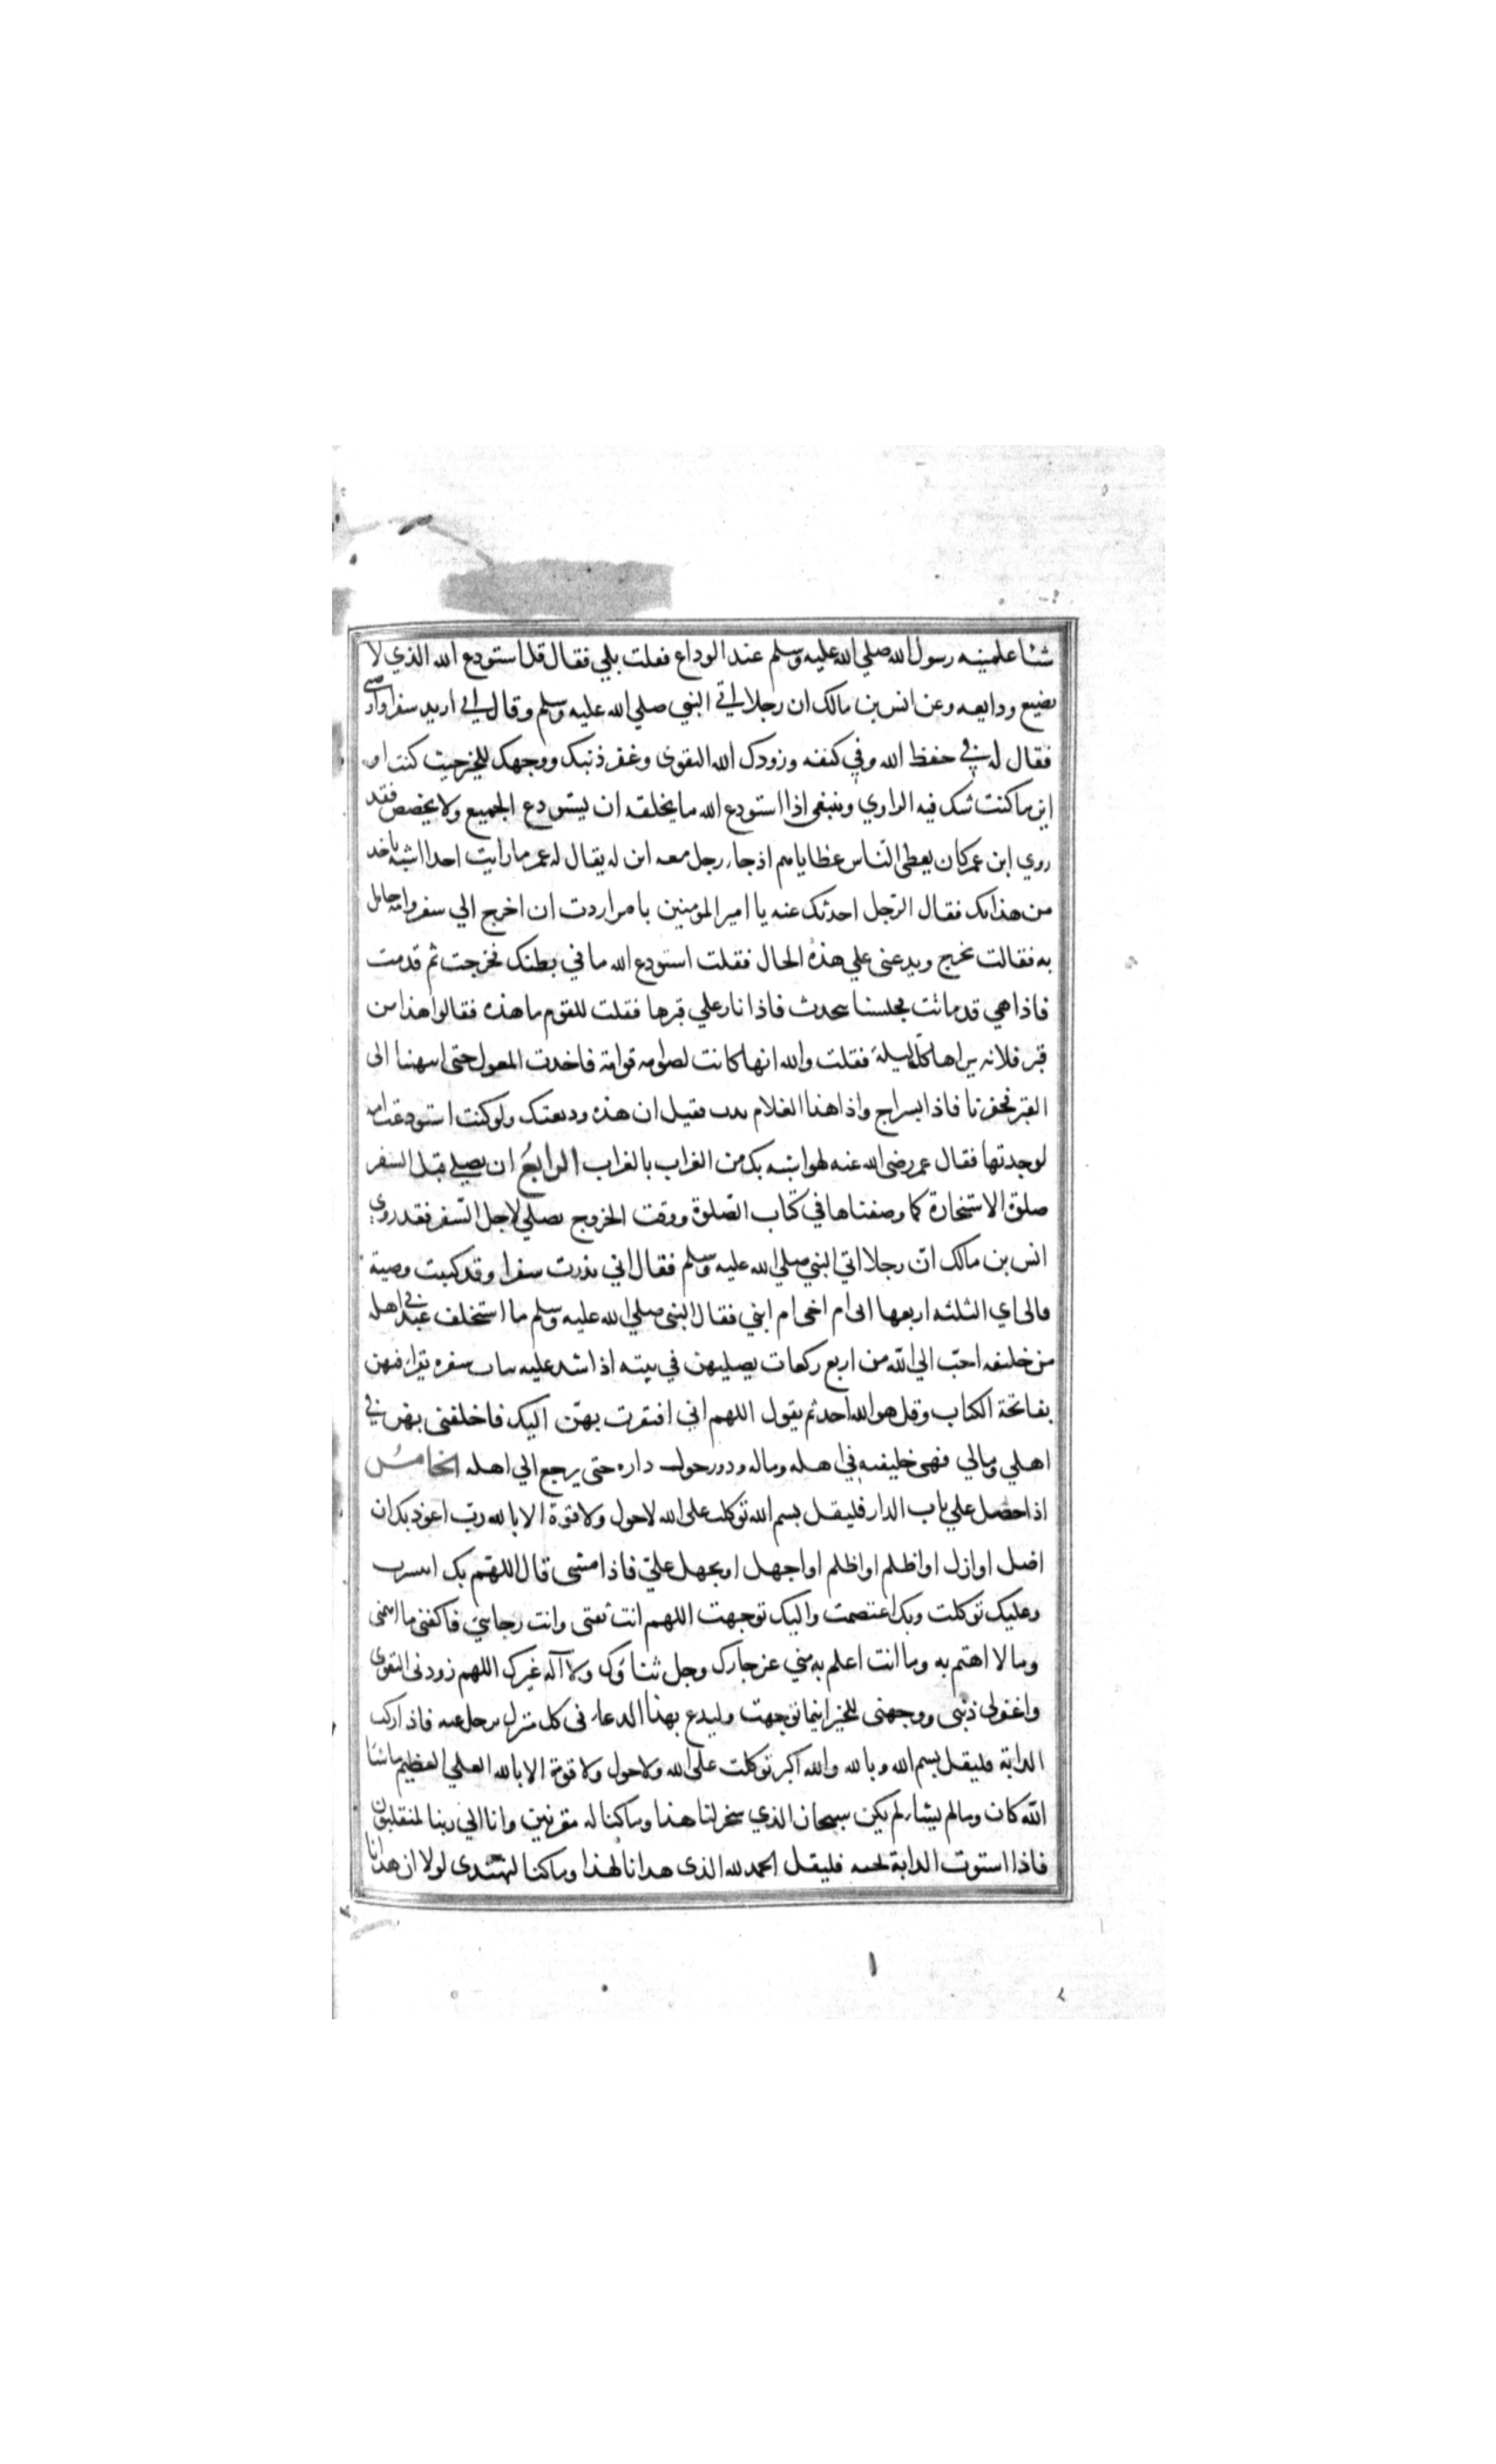 شئا علمنيه رسول الله صلي الله عليه وسلم عند الوداع فقلت بلي فقال قل استودع الله الذي لا
يضيع ودايعه وعن انس بن مالك ان رجلا اتي النبي صلي الله عليه وسلم وقال اني اريد سفرا واوصي
فقال له في حفظ الله وفي كنفه وزودك الله التقوى وغفر ذنبك ووجهك للخير حيث كنت او
اين ما كنت شك فيه الراوي وينبغي اذا استودع الله ما يخلقه ان يستودع الجميع ولا يخصص فقد
روي ابن عمر كان يعطي الناس عطاياهم اذ جاء رجل معه ابن له يقال له عمر ما رايت احدا اشبه باحد
من هذا بك فقال الرجل احدثك عنه يا امير المومنين بامر اردت ان اخرج الي سفر وامه حامل
به فقالت تخرج ويدعني علي هذه الحال فقلت استودع الله ما في بطنك فخرجت ثم قدمت
فاذا هي قد ماتت فجلسنا نتحدث فاذا نار علي قبرها فقلت للقوم ما هذه فقالوا هذا من
قبر فلانه يراها كل ليلة فقلت والله انها كانت لصوامه قوامة فاخدت المعول حتى اسهنا الى
القبر فحفرنا فاذا بسراج واذا هذا الغلام يدب فقيل ان هذه وديعتك ولو كنت استودعت امه
لوجدتها فقال عمر رضي الله عنه لهو اشبه بك من الغراب بالغراب الرابع ان يصلي قبل السفر
صلوة الاستخارة كما وصفناها في كتاب الصلوة ووقت الخروج يصلي لاجل السفر فقد روي
انس بن مالك ان رجلا اتي النبي صلي الله عليه وسلم فقال اني نذرت سفرا وقد كتبت وصية
فالى اي الثلثه ادفعها ابي ام اخي ام ابني فقال النبي صلي الله عليه وسلم ما استخلف عبد في اهله
من خليفه احب الي الله من اربع ركعات يصليهن في بيته اذا شد عليه ثياب سفره يقرا فيهن
بفاتحة الكتاب وقل هو الله احد ثم يقول اللهم اني افتقرت بهن اليك فاخلفني بهن في
اهلي ومالي فهي خليفته في اهله وماله ودور حول داره حتى يرجع الي اهله الخامس
اذا حصل علي باب الدار فليقل بسم الله توكلت على الله لا حول ولا قوة الا بالله رب اعوذ بك ان
اضل او ازل او اظلم او اظلم او اجهل او يجهل علي فاذا مشى قال اللهم بك انتشرت
وعليك توكلت وبك اعتصمت واليك توجهت اللهم انت ثقتي وانت رجاءي فاكفني ما اهمني
وما لا اهتم به وما انت اعلم به مني عز جارك وجل ثناؤك ولا اله غيرك اللهم زودني التقوى
واغفر لي ذنبي ووجهني للخير اينما توجهت وليدع بهذا الدعاء في كل منزل يرحل عنه فاذا ركب
الدابة فليقل بسم الله وبالله والله اكبر توكلت على الله ولا حول ولا قوة الا بالله العلي العظيم ما شا
الله كان وما لم يشاء لم يكن سبحان الذي سخر لنا هذا وما كنا له مقرنين وانا الي ربنا لمنقلبون
فاذا استوت الدابة تحته فليقل الحمد لله الذي هدانا لهذا وما كنا لنهتدى لولا ان هدانا